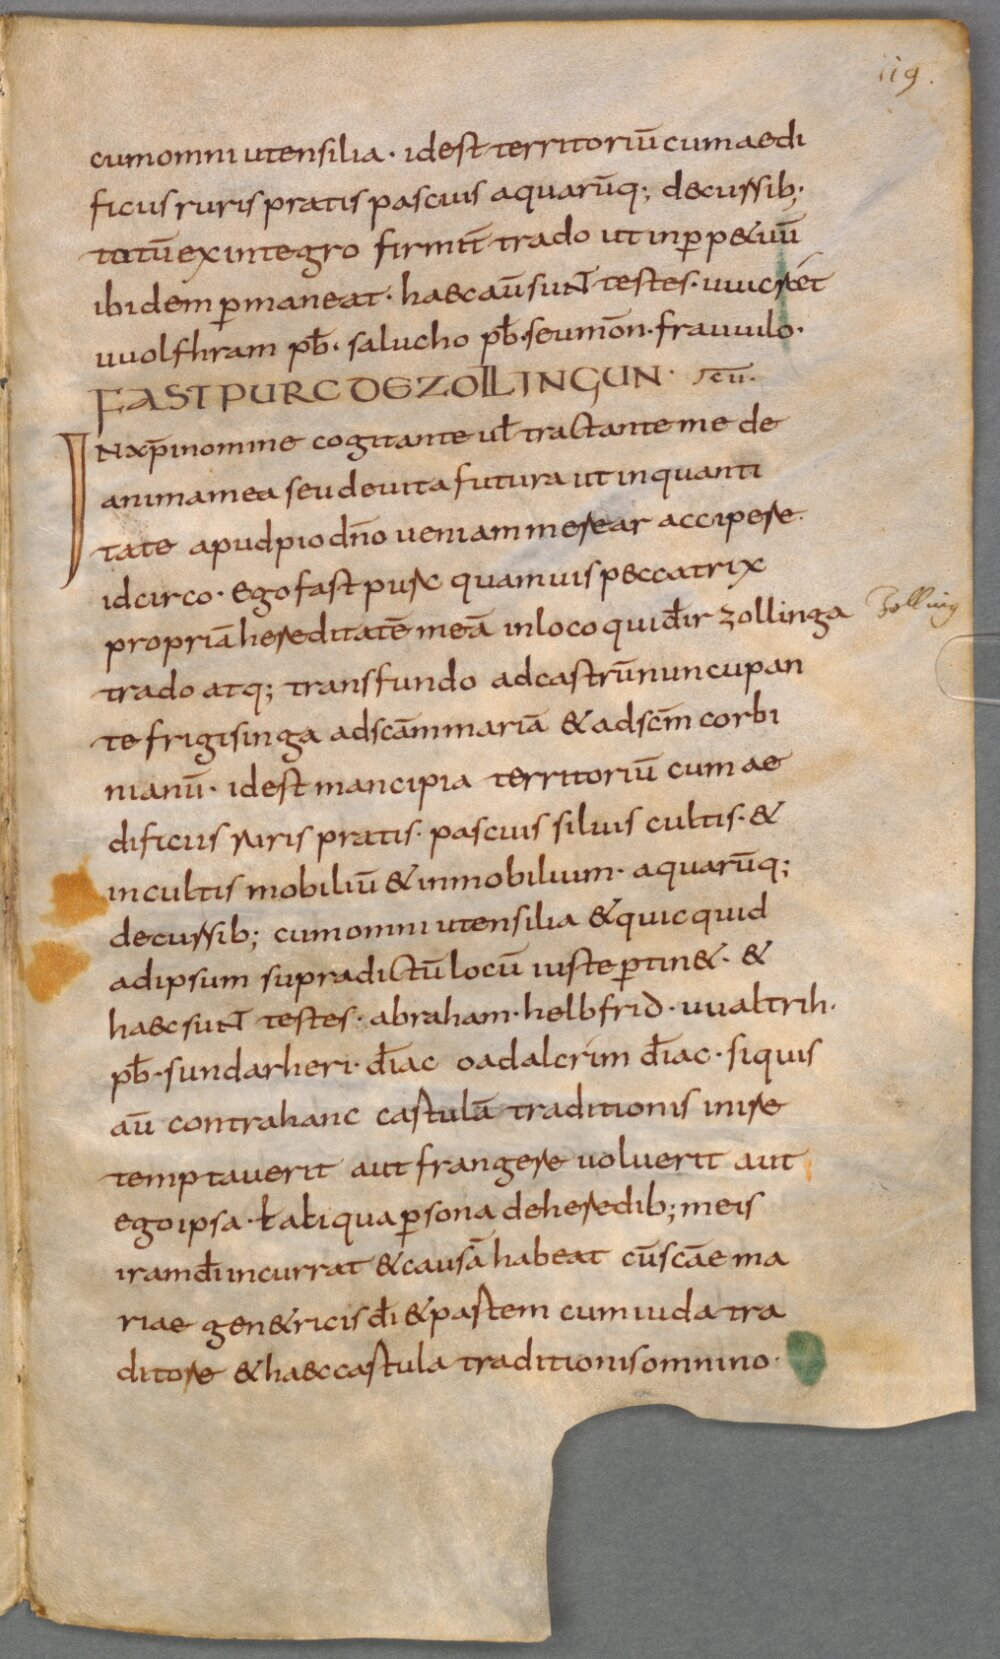 119.
cum omni utensilia · id est territoriū cum aedi
ficiis ruris pratis pascuis aquarūq; decurſsib;
totū ex integro firmit̄ trado ut in ꝑp&uū
ibidem ꝑmaneat · haec aū sunt testes ·
uuolfhram pb̄ · salucho pb̄ · seu mōn · frauuilo ·
FASTPURC DE ZOLLINGUN ·
IN xp̄i nomine cogitante ul̄ tractante me de
anima mea seu de uita futura ut in quanti
tate apud pio dn̄o ueniam merear accipere
idcirco · ego fastpurc quamuis peccatrix
propriā hereditatē meā in loco qui dr̄ zollinga
Zolling
trado atq; transfundo ad castrū nuncupan
te frigisinga ad scām mariā & ad scm̄ corbi
nianū · id est mancipia territoriū cum ae
dificiis ruris pratis · pascuis siluis cultis · &
incultis mobiliū & inmobilium · aquarūq;
decurſsib; cum omni utensilia & quicquid
ad ipsum supradictū locū iuste ꝑtin& · &
haec sunt testes · abraham · helbfrid · uualtrih ·
pb̄ · sundarheri · diāc oadalcrim diāc · siquis
aū contra hanc castulā traditionis inire
temptauerit aut frangere uoluerit aut
ego ipsa · ł aliqua ꝑsona de heredib; meis
iram dī incurrat & causā habeat cū scāe ma
riae gen&ricis dī & pastem cum iuda tra
ditore & haec castula traditionis omnino ·